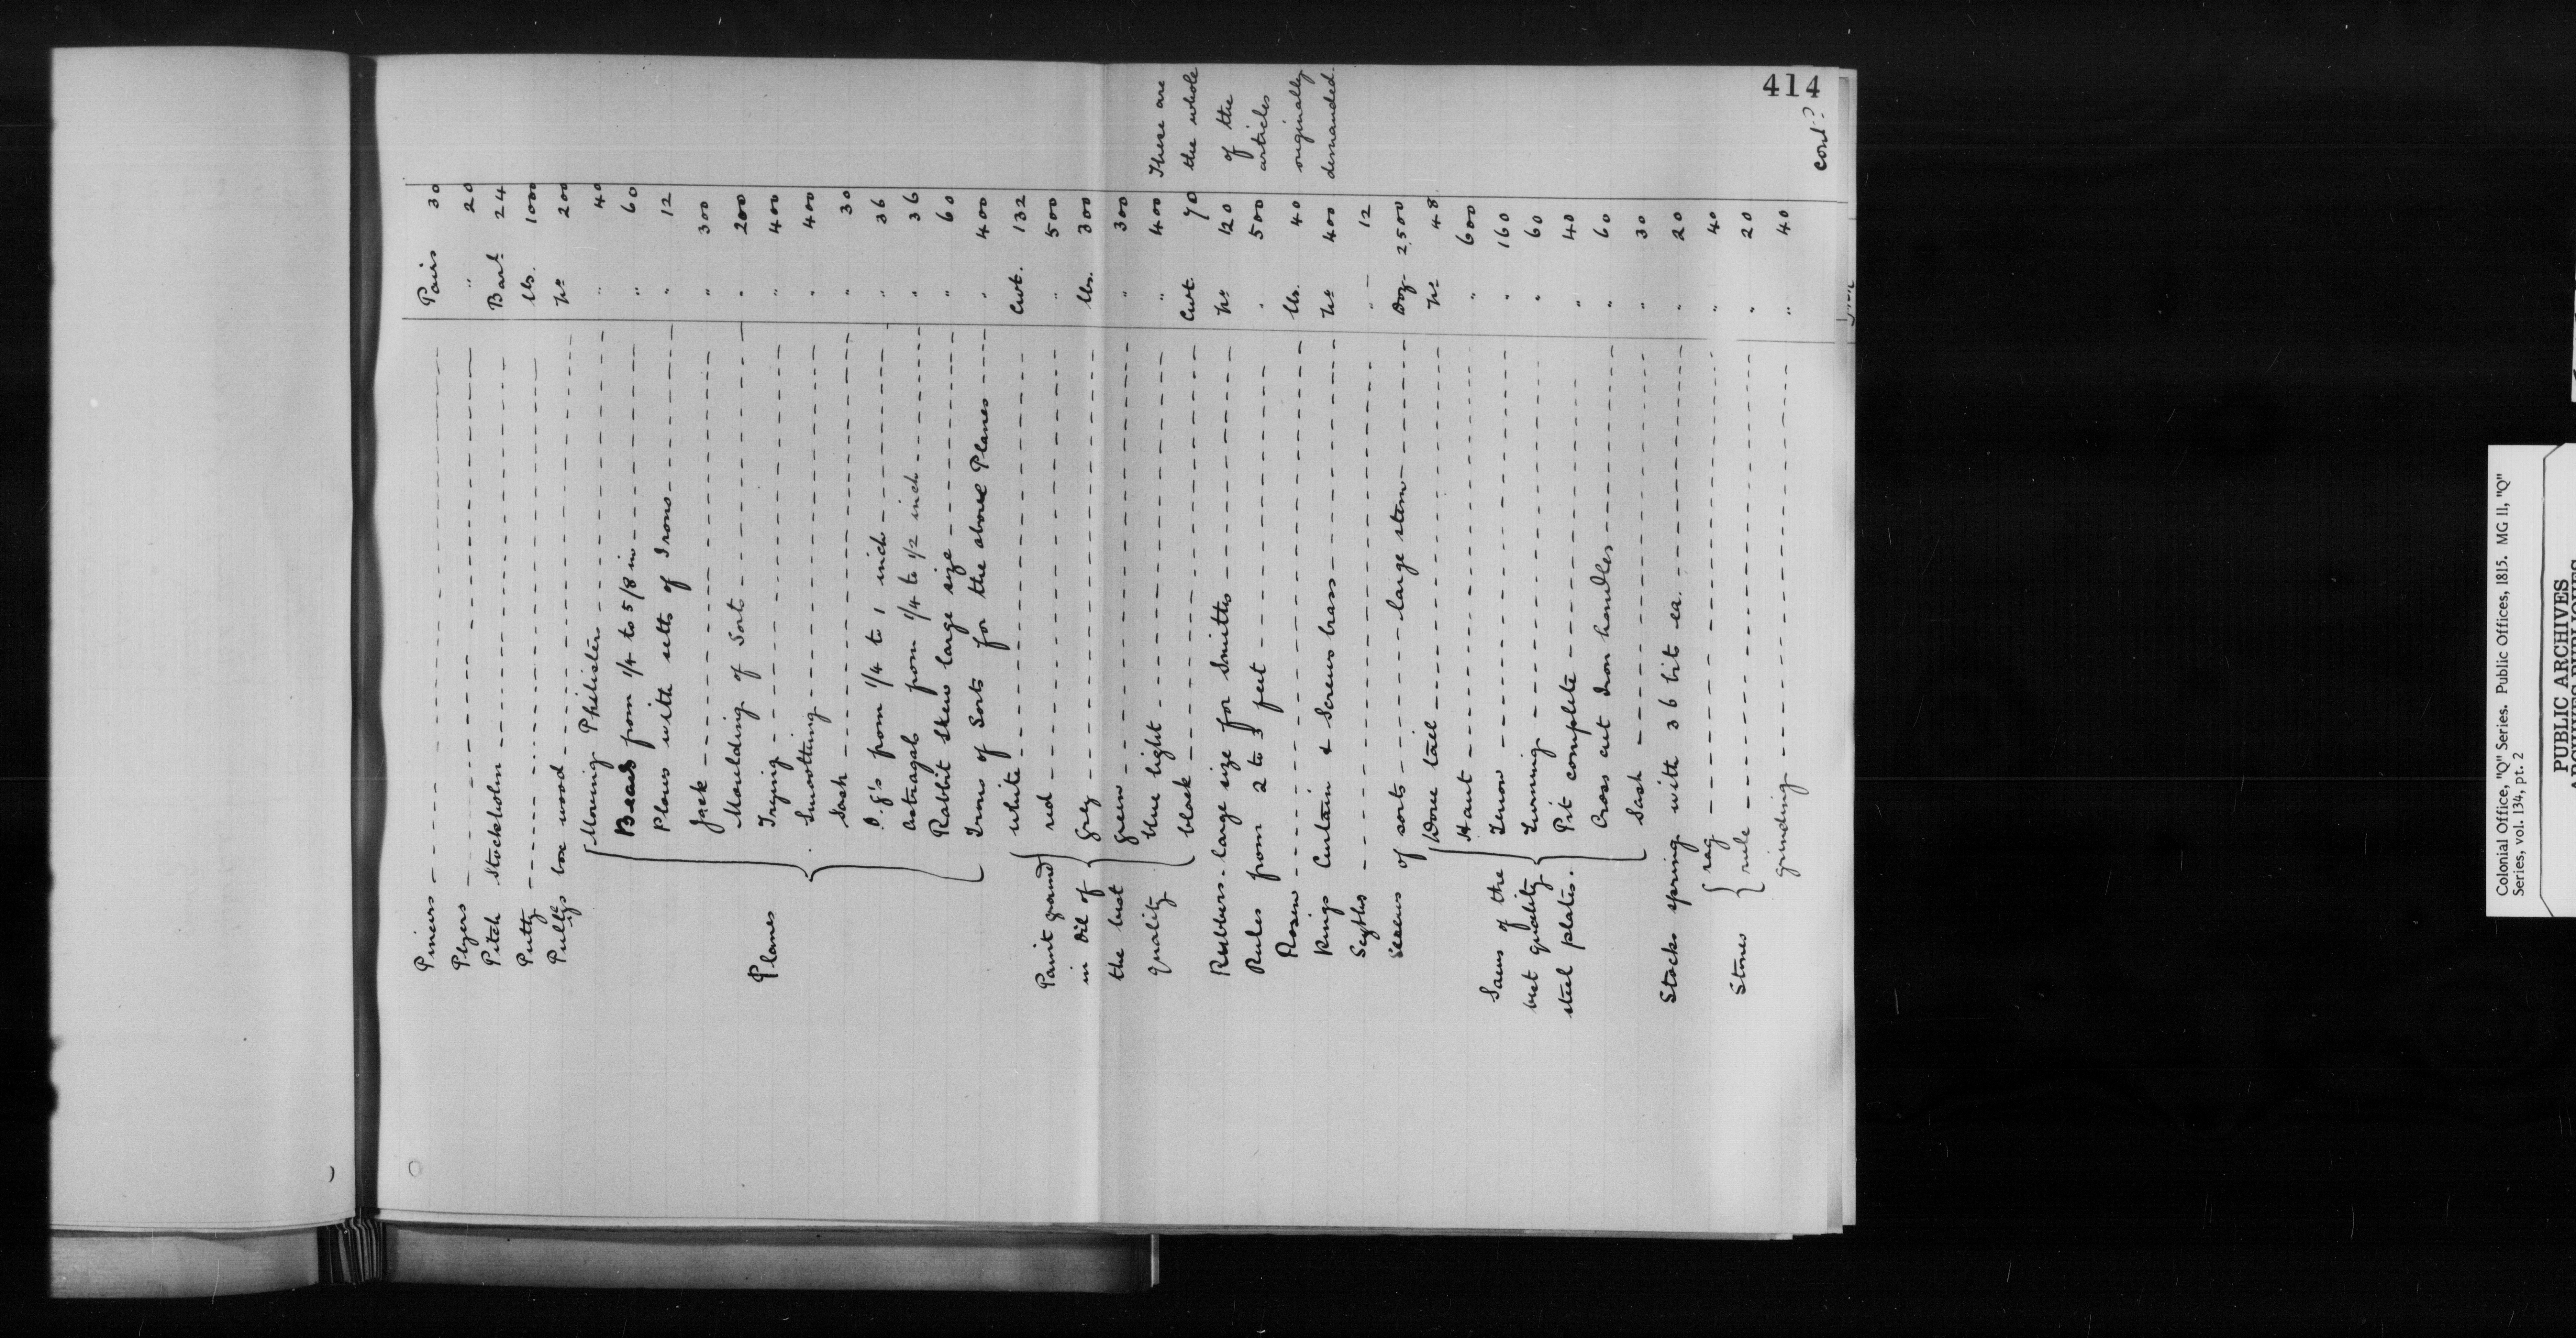 414
Pincers Pairs 30
Plyers " 20
Pitch Stockholm Barl 24
Putty lbs. 1000
Pullys box wood No 200
Moving Philisters " 40
Beads from 1/4 to 5/8 in " 60
Plows with setts of Irons " 12
Jack " 300
Moulding of Sorts " 200
Planes Trying " 400
Smoothing " 400
Sash " 30
O.g's from 1/4 to 1 inch " 36
Astragals from 1/4 to 1/2 inch " 36
Rabbit Skew large size " 60
Irons of Sorts for the above Planes " 400
white Cwt. 132
Paint ground red " 500
in Oil of Grey lbs. 300
the best green " 300
Quality blue light " 400 These are
black Cwt. 70 the whole
Rubbers - large size for Smiths No 120 of the
Rules from 2 to 3 feet " 500 articles
Rosin lbs. 40 originally
Rings Curtain & Screws brass No 400 demanded.
Scyths " 12
Screws of sorts large stem Doz 2,500
Dove tail No 48
Hant " 600
Saws of the Tenon " 160
best quality Turning " 60
steel plates. Pit complete " 40
Cross cut Iron handles " 60
Sash " 30
Stocks spring with 36 bit ea. " 20
rag " 40
Stones rule " 20
grinding " 40
cont?
Colonial Office, "Q" Series. Public Offices, 1815. MG 11, "Q"
Series, vol. 134, pt. 2
PUBLIC ARCHIVES